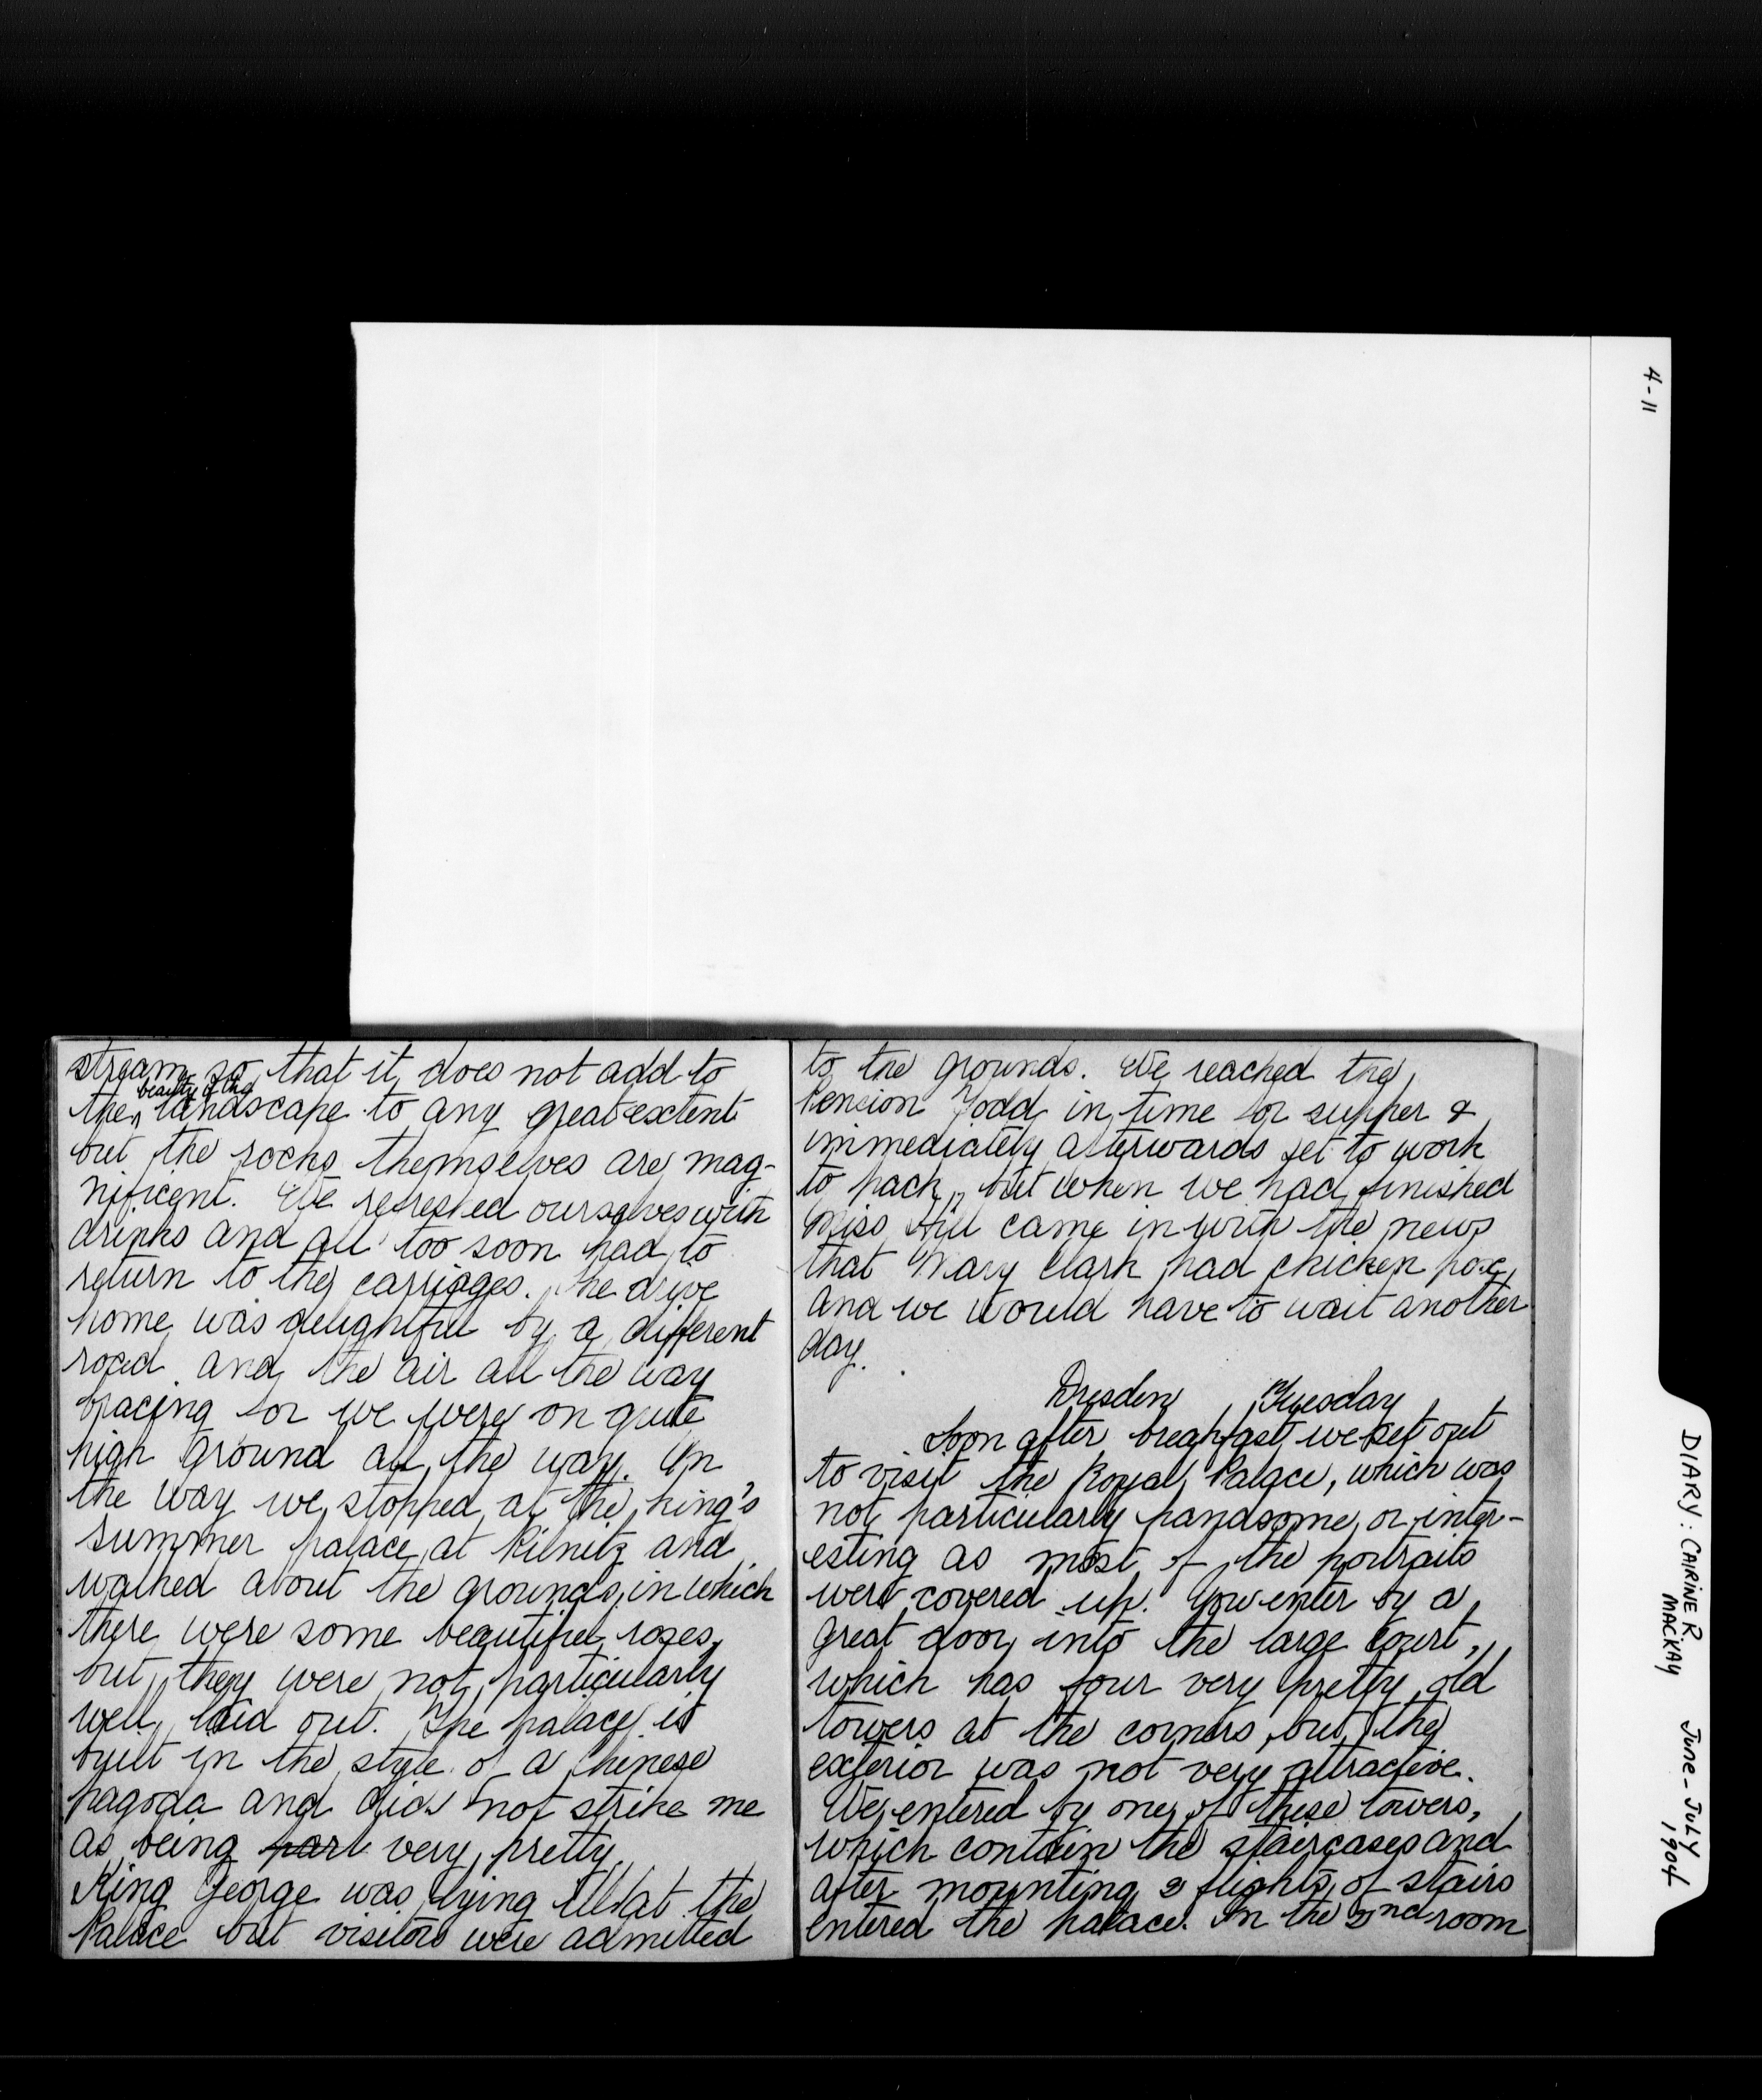 stream so that it does not add to
the beauty of the landscape to any great extent
but the rocks themselves are mag-
nificent. We refreshed ourselves with
drinks and all too soon had to
return to the carriages. The drive
home was delightful by a different
road and the air all the way
bracing for we were on quite
high ground all the way. On
the way we stopped at the king's
summer palace at Pilnitz and
walked about the grounds, in which
there were some beautiful roses,
but they were not particularly
well laid out. The palace is
built in the style of a Chinese
pagoda and did not strike me
as being part very pretty.
King George was lying ill at the
Palace but visitors were admitted
to the grounds. We reached the
Pension Todd in time for supper &
immediately afterwards set to work
to pack, but when we had finished
Miss Hill came in with the news
that Mary Clark had chicken pox
and we would have to wait another
day.
Dresden Tuesday
Soon after breakfast we set out
to visit the Royal Palace, which was
not particularly handsome or inter-
esting as most of the portraits
were covered up. You enter by a
great door into the large court,
which has four very pretty old
towers at the corners, but the
exterior was not very attractive.
We entered by one of these towers,
which contain the staircases and
after mounting 2 flights of stairs
entered the palace. In the 2nd room
4-11
DIARY: CARINE R. MACKAY
JUNE-JULY 1904